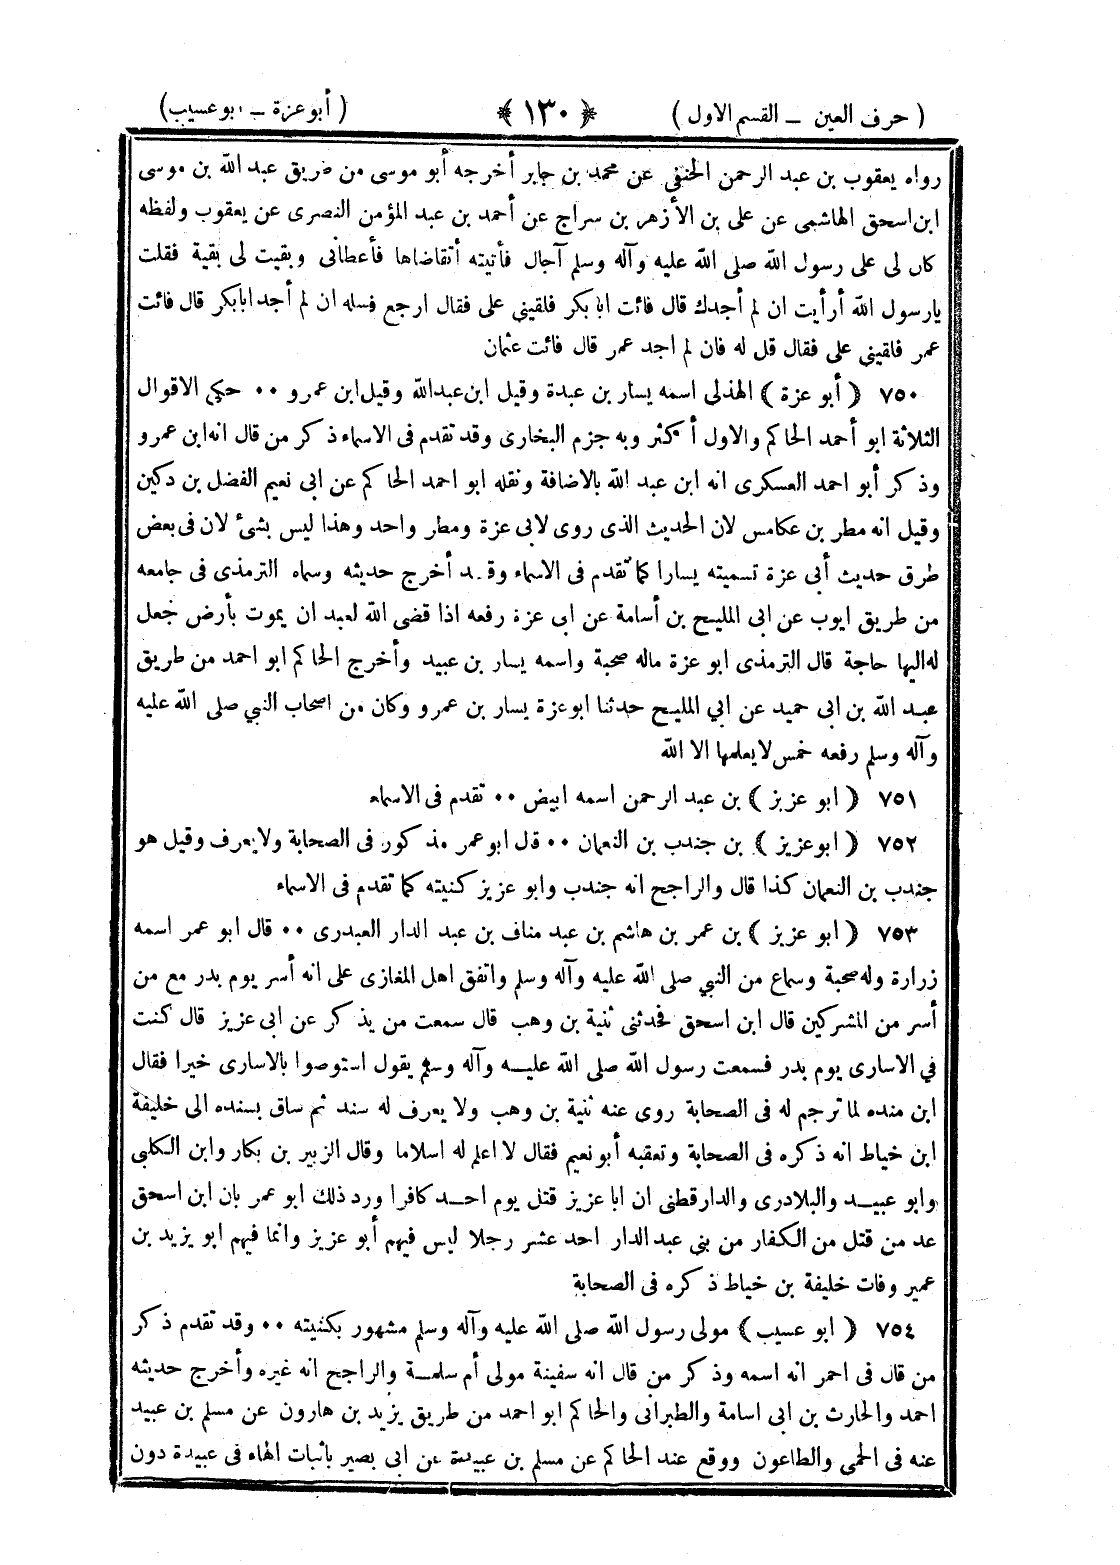 ( حرف العين ــ القسم الاول ) ﴿ ١٣٠ ﴾ ( أبو عزة ــ ابو عسيب )
رواه يعقوب بن عبد الرحمن الحنفى عن محمد بن جابر أخرجه أبو موسى من طريق عبد الله بن موسى
ابن اسحق الهاشمى عن على بن الأزهر بن سراج عن أحمد بن عبد المؤمن النصرى عن يعقوب ولفظه
كان لى على رسول الله صلى الله عليه وآله وسلم آجال فأتيته أتقاضاها فأعطانى وبقيت لى بقية فقلت
يارسول الله أرأيت ان لم أجدك قال فائت ابا بكر فلقينى على فقال ارجع فسله ان لم أجد ابابكر قال فائت
عمر فلقينى على فقال قل له فان لم اجد عمر قال فائت عثمان
٧٥٠ ( أبو عزة ) الهذلى اسمه يسار بن عبدة وقيل ابن عبدالله وقيل ابن عمرو ٠٠ حكى الاقوال
الثلاثة ابو أحمد الحاكم والاول أكثر وبه جزم البخارى وقد تقدم فى الاسماء ذكر من قال انه ابن عمرو
وذكر أبو احمد العسكرى انه ابن عبد الله بالاضافة ونقله ابو احمد الحاكم عن ابى نعيم الفضل بن دكين
وقيل انه مطر بن عكامس لان الحديث الذى روى لابى عزة ومطر واحد وهذا ليس بشئ لان فى بعض
طرق حديث أبى عزة تسميته يسارا كما تقدم فى الاسماء وقد أخرج حديثه وسماه الترمذى فى جامعه
من طريق ايوب عن ابى المليح بن أسامة عن ابى عزة رفعه اذا قضى الله لعبد ان يموت بأرض جعل
له اليها حاجة قال الترمذى ابو عزة ماله صحبة واسمه يسار بن عبيد وأخرج الحاكم ابو احمد من طريق
عبد الله بن ابى حميد عن ابي المليح حدثنا ابوعزة يسار بن عمرو وكان من اصحاب النبي صلى الله عليه
وآله وسلم رفعه خمس لايعلمها الا الله
٧٥١ ( ابو عزيز ) بن عبد الرحمن اسمه ابيض ٠٠ تقدم فى الاسماء
٧٥٢ ( ابوعزيز ) بن جندب بن النعمان ٠٠ قال ابوعمر مذكور فى الصحابة ولايعرف وقيل هو
جندب بن النعمان كذا قال والراجح انه جندب وابو عزيز كنيته كما تقدم فى الاسماء
٧٥٣ ( ابو عزيز ) بن عمر بن هاشم بن عبد مناف بن عبد الدار العبدرى ٠٠ قال ابو عمر اسمه
زرارة وله صحبة وسماع من النبي صلى الله عليه وآله وسلم واتفق اهل المغازى على انه أسر يوم بدر مع من
أسر من المشركين قال ابن اسحق فحدثنى نبيه بن وهب قال سمعت من يذكر عن ابى عزيز قال كنت
في الاسارى يوم بدر فسمعت رسول الله صلى الله عليه وآله وسلم يقول استوصوا بالاسارى خيرا فقال
ابن منده لما ترجم له فى الصحابة روى عنه نبيه بن وهب ولا يعرف له سند ثم ساق بسنده الى خليفة
ابن خياط انه ذكره فى الصحابة وتعقبه أبو نعيم فقال لا اعلم له اسلاما وقال الزبير بن بكار وابن الكلبى
وابو عبيد والبلادرى والدارقطنى ان ابا عزيز قتل يوم احد كافرا ورد ذلك ابو عمر بان ابن اسحق
عد من قتل من الكفار من بنى عبد الدار احد عشر رجلا ليس فيهم أبو عزيز وانما فيهم ابو يزيد بن
عمير وفات خليفة بن خياط ذكره فى الصحابة
٧٥٤ ( ابو عسيب ) مولى رسول الله صلى الله عليه وآله وسلم مشهور بكنيته ٠٠ وقد تقدم ذكر
من قال فى احمر انه اسمه وذكر من قال انه سفينة مولى أم سلمة والراجح انه غيره وأخرج حديثه
احمد والحارث بن ابى اسامة والطبرانى والحاكم ابو احمد من طريق يزيد بن هارون عن مسلم بن عبيد
عنه فى الحمى والطاعون ووقع عند الحاكم عن مسلم بن عبيدة عن ابى بصير باثبات الهاء فى عبيدة دون